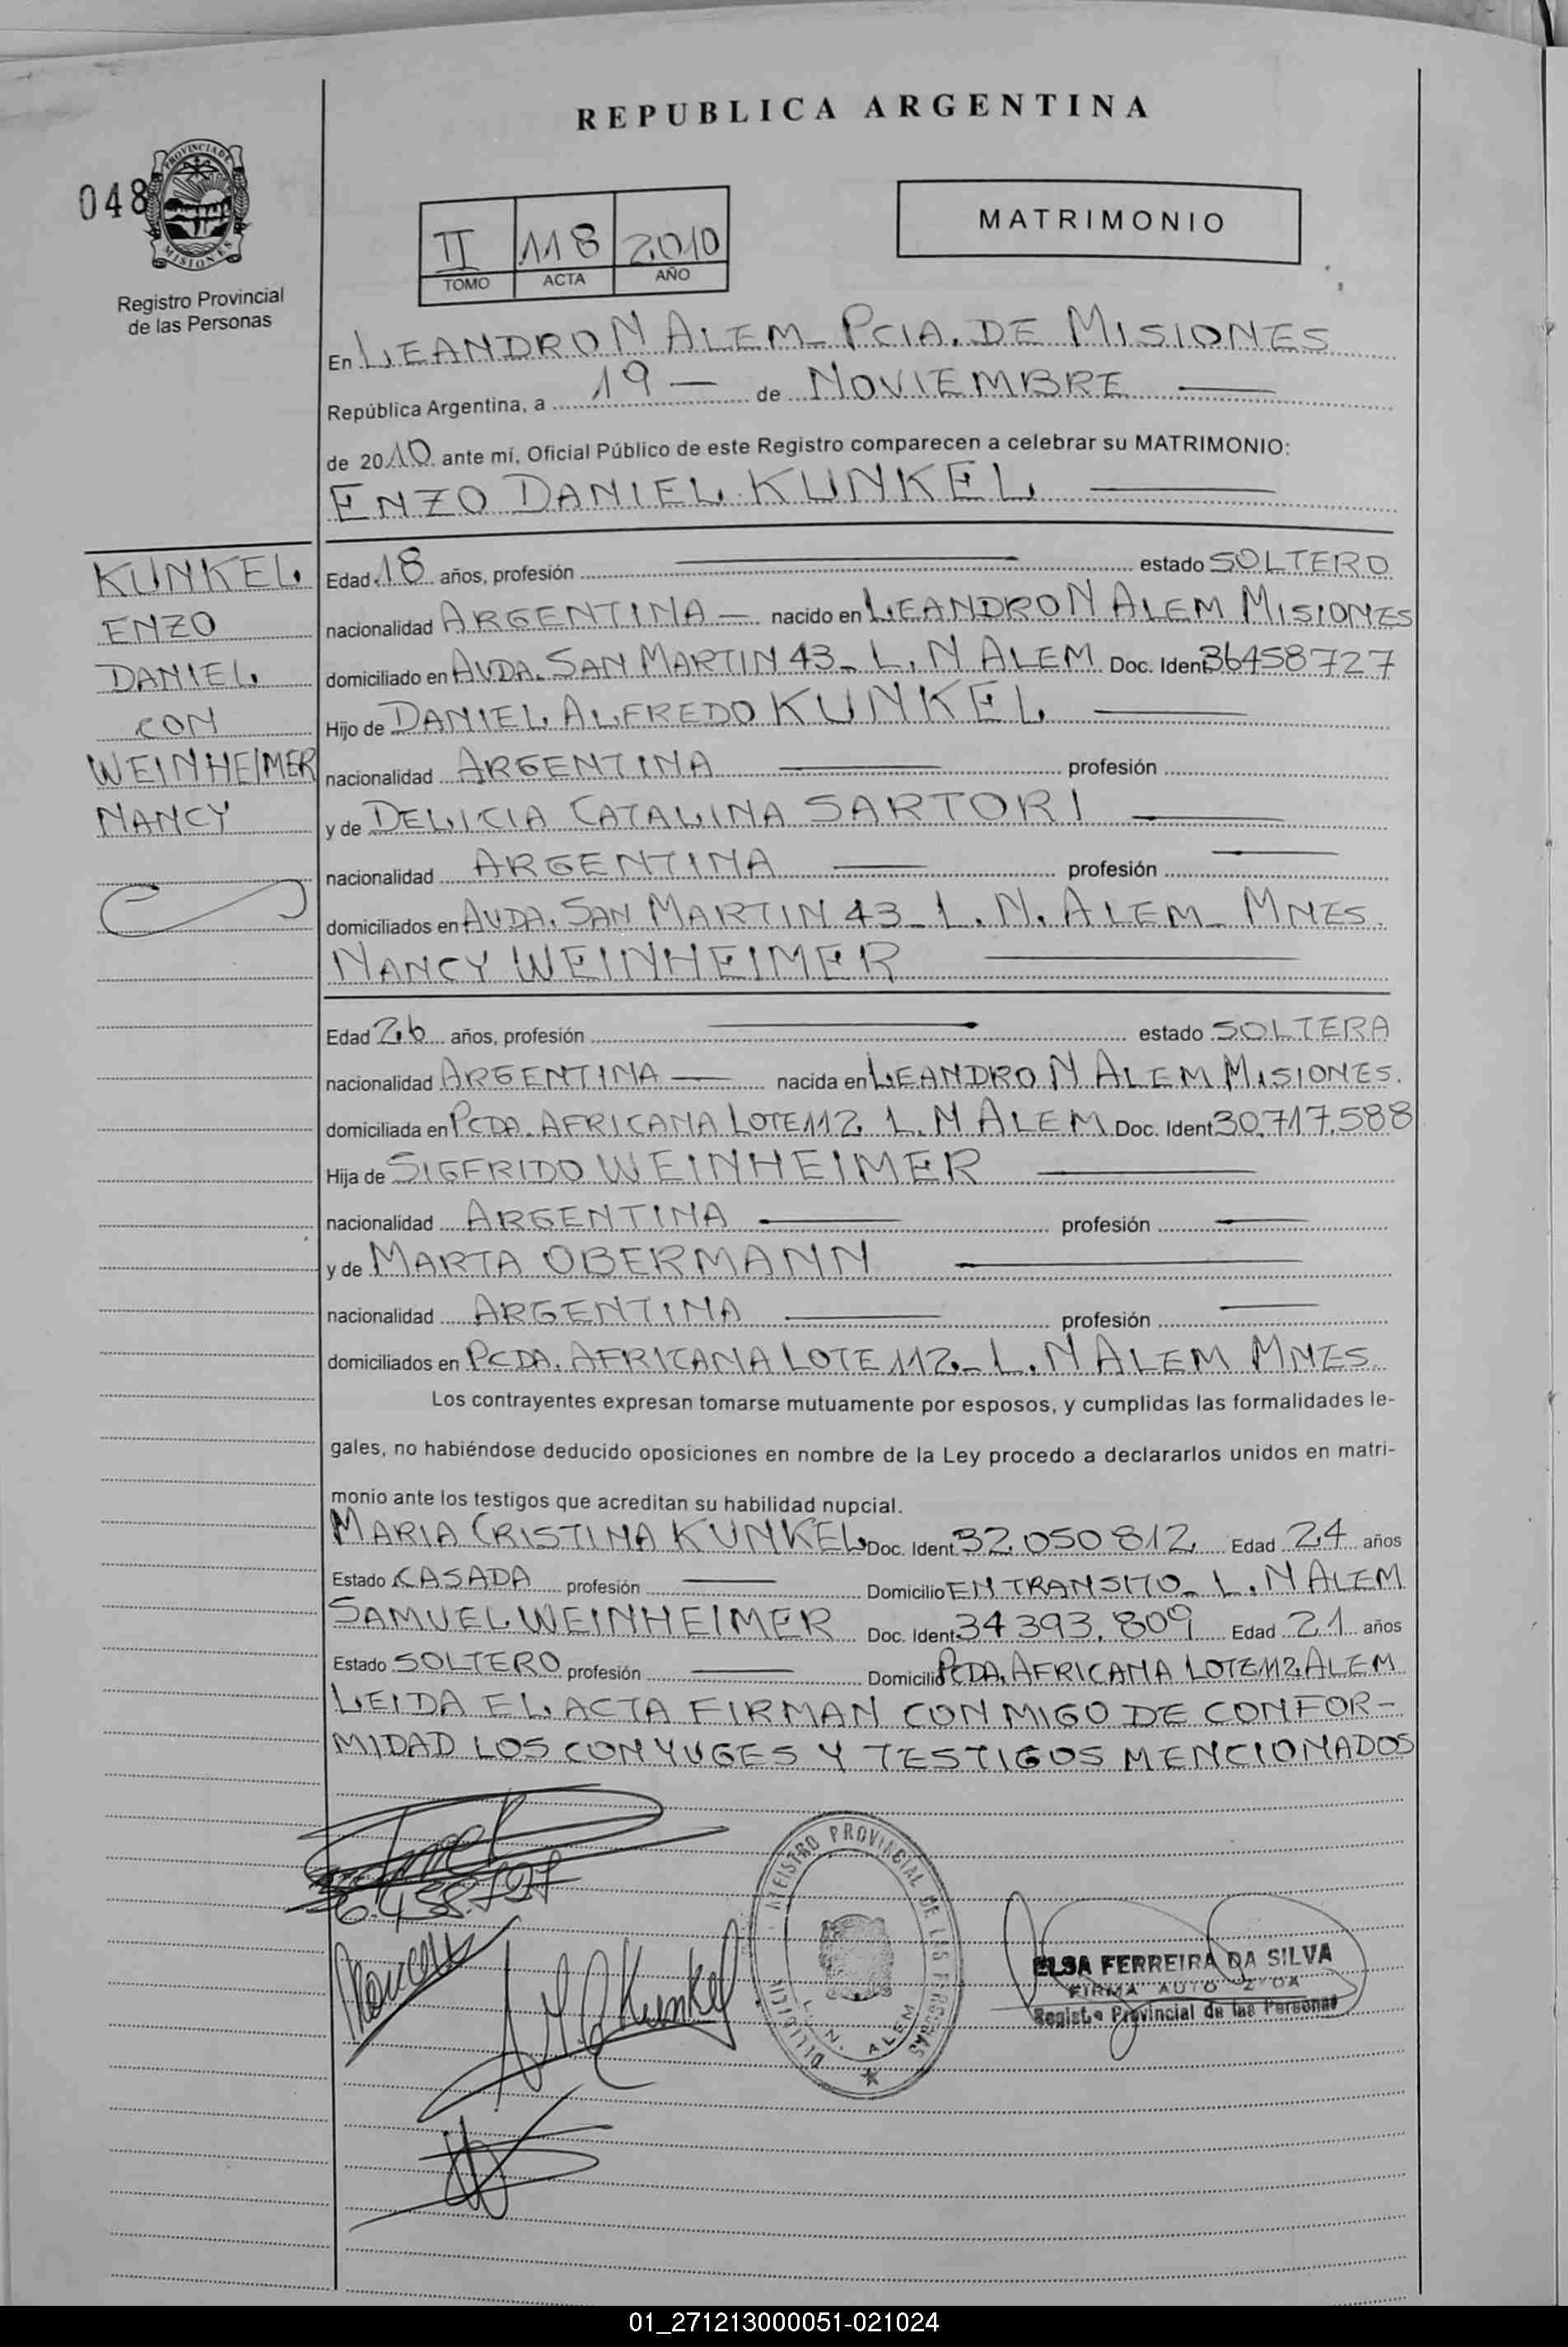 REPUBLICA ARGENTINA
048
PROVINCIA DE
MISIONES
Registro Provincial
de las Personas
II 118 2010
TOMO ACTA AÑO
MATRIMONIO
En LEANDRO N ALEM - PCIA. DE MISIONES
República Argentina, a 19 — de NOVIEMBRE —
de 2010 ante mí, Oficial Público de este Registro comparecen a celebrar su MATRIMONIO:
ENZO DANIEL KUNKEL —
KUNKEL
ENZO
DANIEL
CON
WEINHEIMER
NANCY
Edad 18 años, profesión — estado SOLTERO
nacionalidad ARGENTINA — nacido en LEANDRO N ALEM MISIONES
domiciliado en AVDA. SAN MARTIN 43 - L. N ALEM Doc. Ident. 36458727
Hijo de DANIEL ALFREDO KUNKEL —
nacionalidad ARGENTINA — profesión
y de DELICIA CATALINA SARTORI —
nacionalidad ARGENTINA — profesión —
domiciliados en AVDA. SAN MARTIN 43 - L. N. ALEM - MNES.
NANCY WEINHEIMER —
Edad 26 años, profesión — estado SOLTERA
nacionalidad ARGENTINA — nacida en LEANDRO N ALEM MISIONES.
domiciliada en PCDA. AFRICANA LOTE 112 L. N ALEM Doc. Ident. 30.717.588
Hija de SIGFRIDO WEINHEIMER —
nacionalidad ARGENTINA — profesión —
y de MARTA OBERMANN —
nacionalidad ARGENTINA — profesión —
domiciliados en PCDA. AFRICANA LOTE 112 - L. N ALEM MNES.
Los contrayentes expresan tomarse mutuamente por esposos, y cumplidas las formalidades le-
gales, no habiéndose deducido oposiciones en nombre de la Ley procedo a declararlos unidos en matri-
monio ante los testigos que acreditan su habilidad nupcial.
MARIA CRISTINA KUNKEL Doc. Ident. 32.050812 Edad 24 años
Estado CASADA profesión — Domicilio EN TRANSITO - L. N ALEM
SAMUEL WEINHEIMER Doc. Ident. 34 393. 809 Edad 21 años
Estado SOLTERO profesión — Domicilio PCDA. AFRICANA LOTE 112 ALEM
LEIDA EL ACTA FIRMAN CONMIGO DE CONFOR-
MIDAD LOS CONYUGES Y TESTIGOS MENCIONADOS
36.458.727
REGISTRO PROVINCIAL DE LAS PERSONAS
L. N. ALEM
M C Kunkel
ELSA FERREIRA DA SILVA
FIRMA AUTORIZADA
Registro Provincial de las Personas
01_271213000051-021024